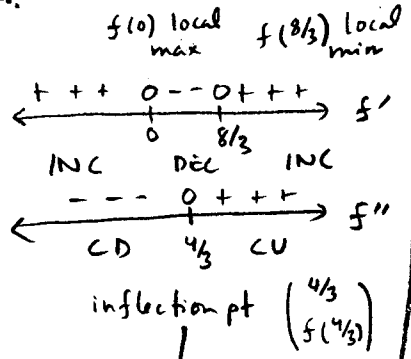 f(0) local max f(8/3) local min
+ + + 0 - - 0 + + + f'
0 8/3
INC DEC INC
- - - 0 + + + f''
CD 4/3 CU
inflection pt (4/3
f(4/3))